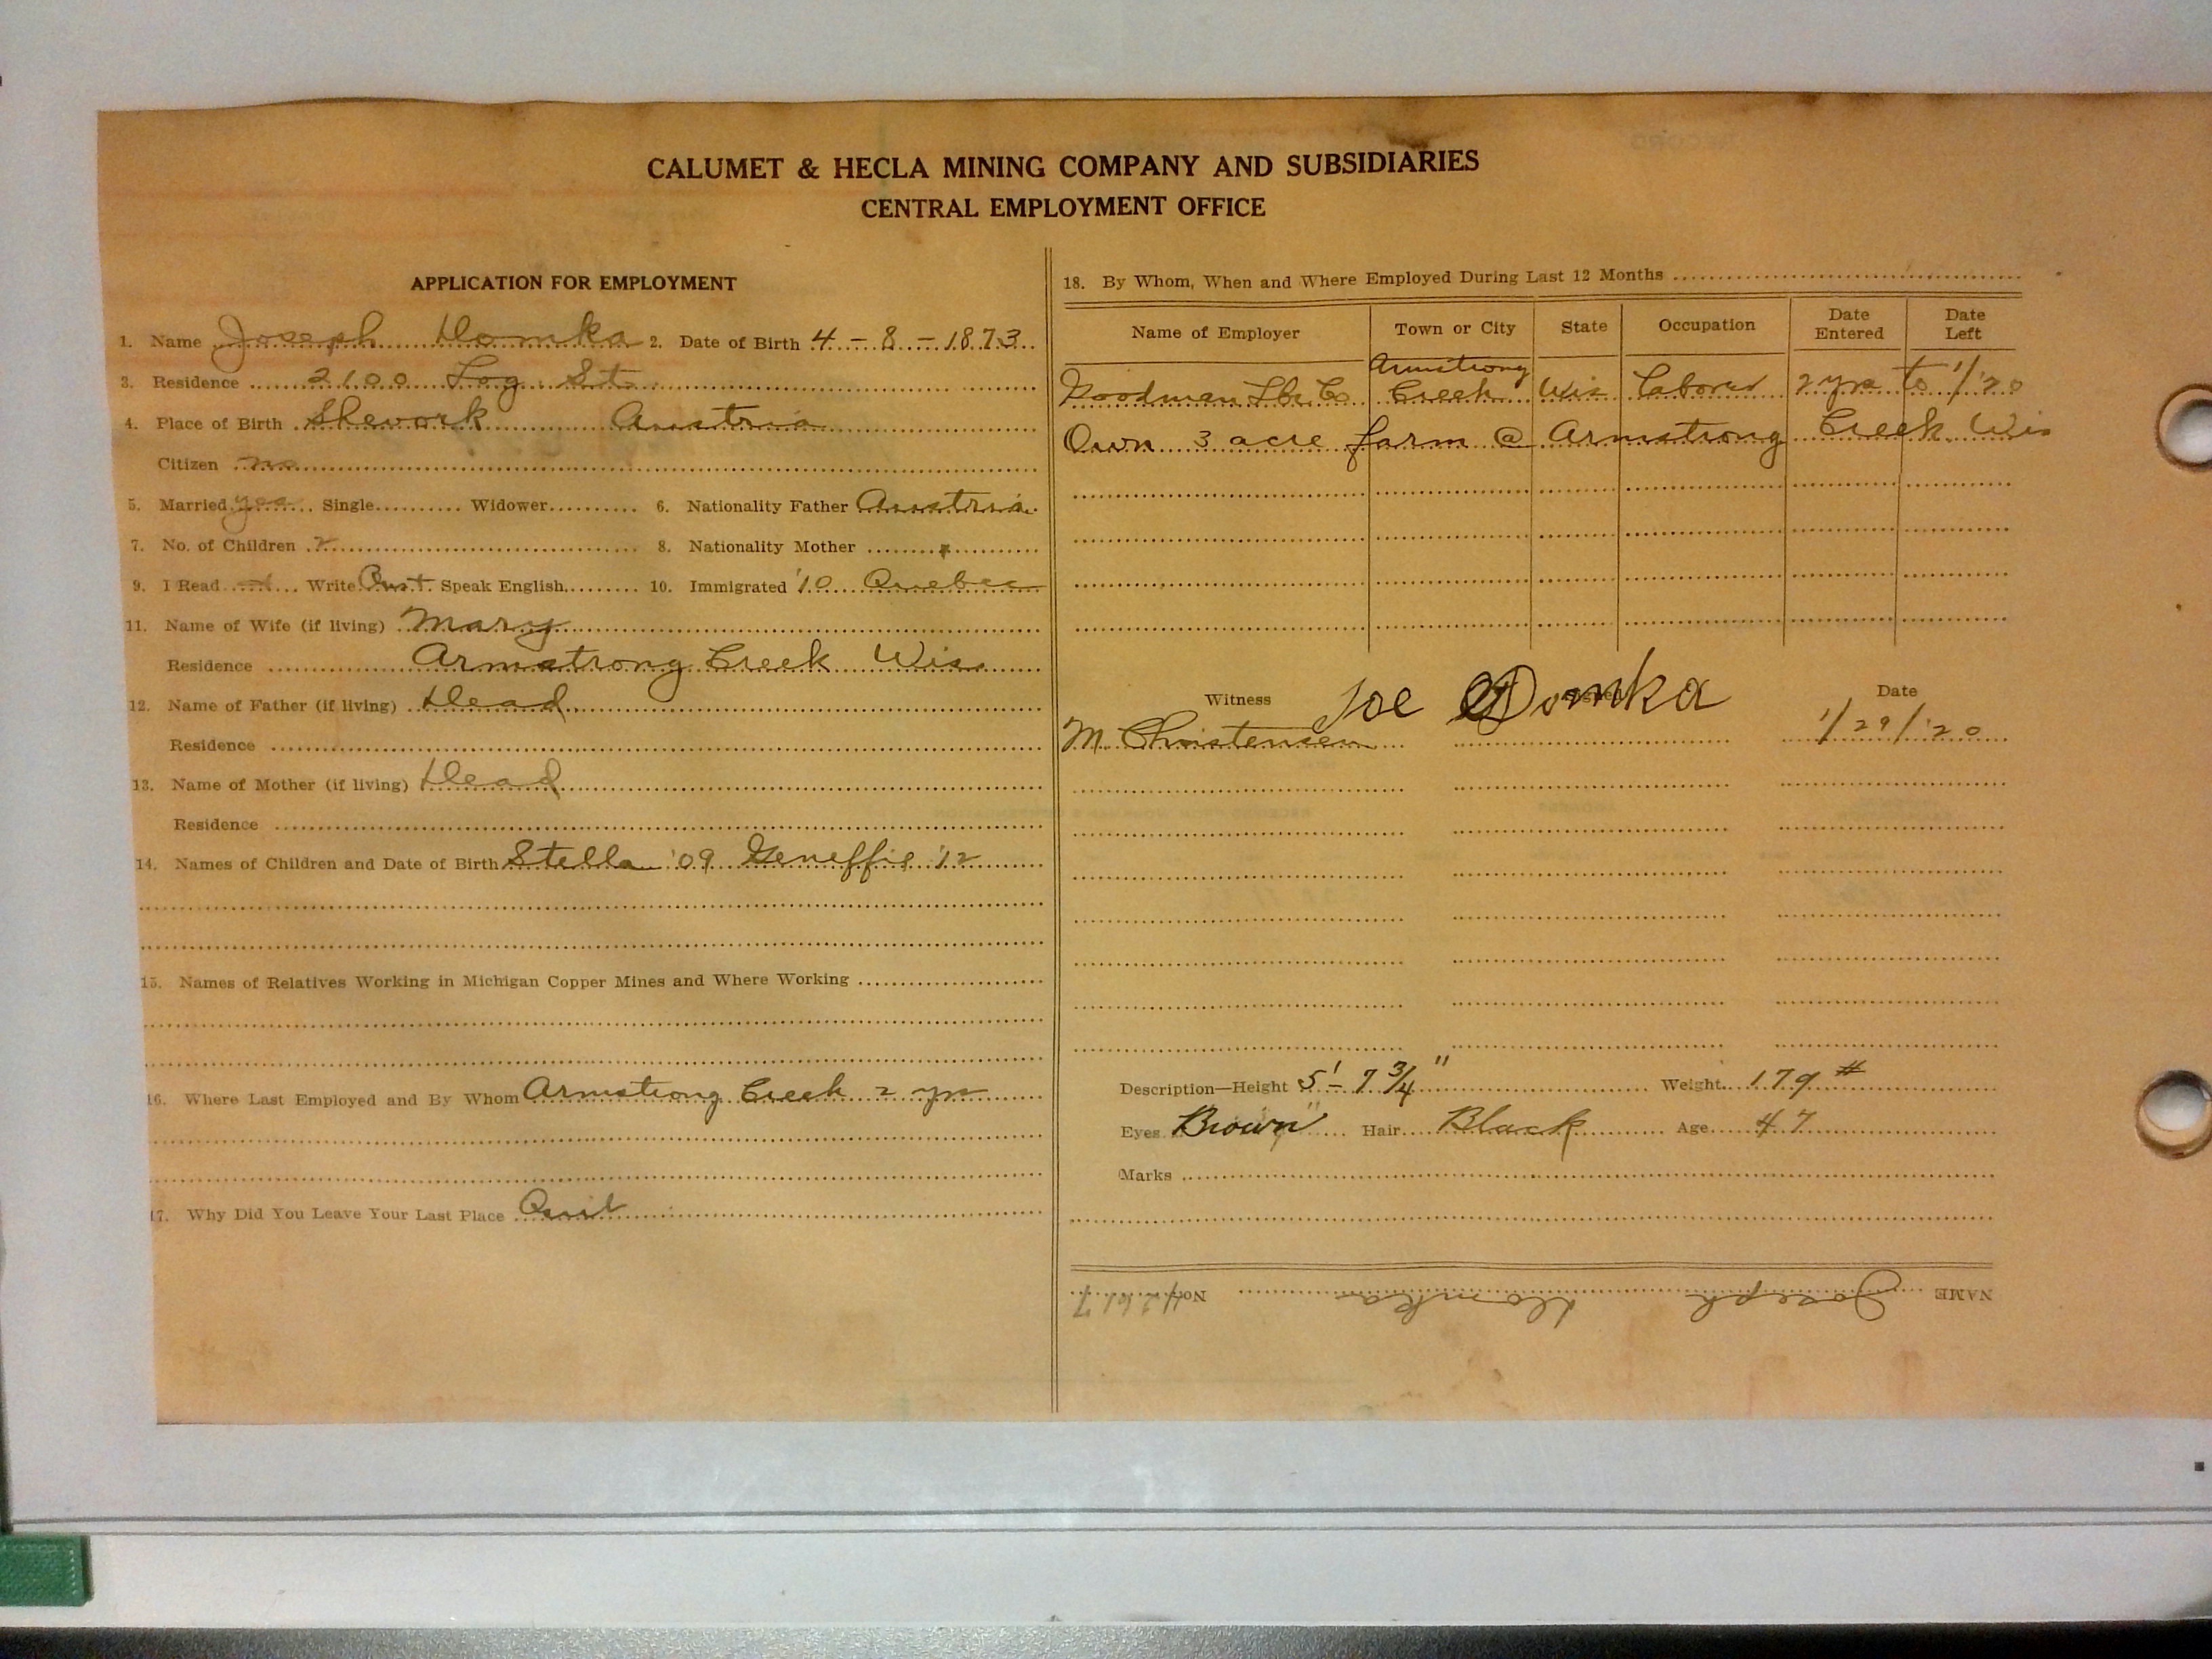 CALUMET & HECLA MINING COMPANY AND SUBSIDIARIES
CENTRAL EMPLOYMENT OFFICE
APPLICATION FOR EMPLOYMENT
1. Name Joseph Domka 2. Date of Birth 4-8-1873
3. Residence 2100 Log St
4. Place of Birth Skevork Austria
Citizen no
5. Married yes Single Widower 6. Nationality Father Austria
7. No. of Children 2 8. Nationality Mother "
9. I Read Write Aust. Speak English 10. Immigrated '10 Quebec
11. Name of Wife (if living) Mary
Residence Armstrong Creek Wis.
12. Name of Father (if living) Dead
Residence
13. Name of Mother (if living) Dead
Residence
14. Names of Children and Date of Birth Stella '09 Geneffie '12
15. Names of Relatives Working in Michigan Copper Mines and Where Working
16. Where Last Employed and By Whom Armstrong Creek 2 yrs
17. Why Did You Leave Your Last Place Quit
18. By Whom, When and Where Employed During Last 12 Months
Name of Employer Town or City State Occupation Date Entered Date Left
Goodman Lbr Co Armstrong Creek Wis Laborer 2 yrs to 1/20
Own 3 acre farm @ Armstrong Creek Wis
Witness Joe Domka Date
M. Christensen 1/29/'20
Description—Height 5'-7 3/4" Weight 179 #
Eyes Brown Hair Black Age 47
Marks
NAME Joseph Domka No.